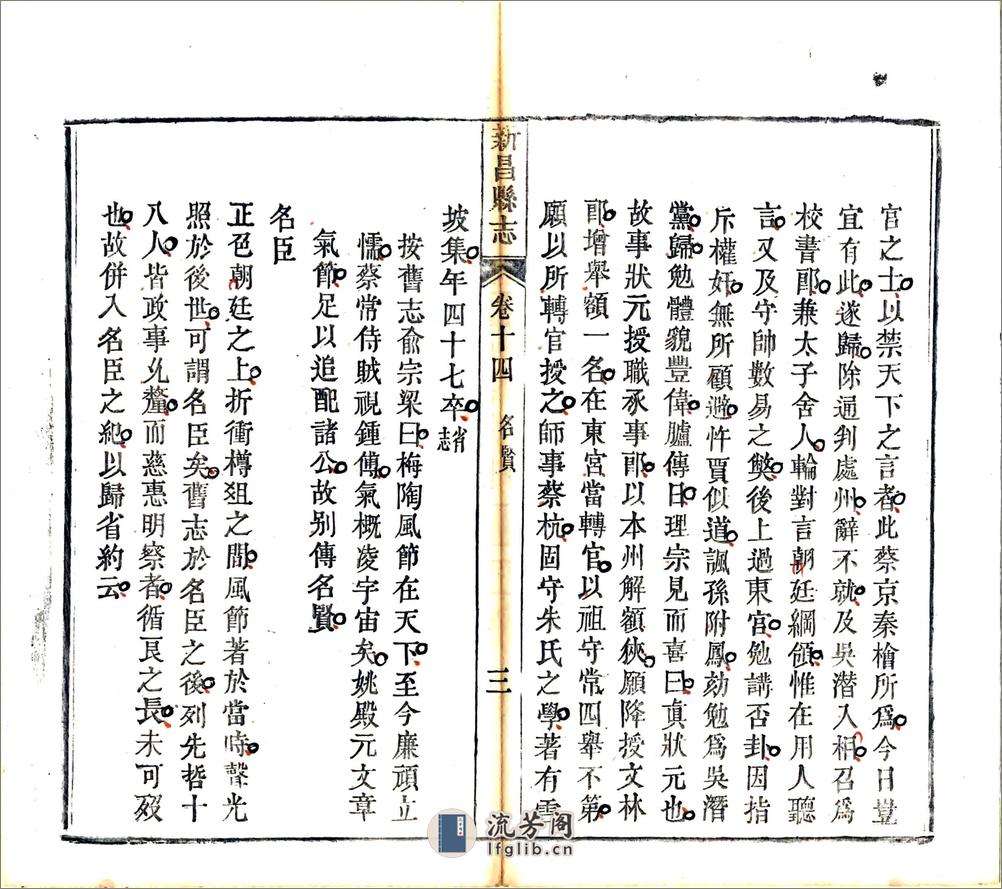 官之士以禁天下之言者此蔡京秦檜所爲今日豈
宜有此遂歸除通判處州辭不就及吳潜入相召爲
校書郎兼太子舍人輪對言朝廷綱領惟在用人聽
言又及守帥數易之獘後上過東宮勉講否卦因指
斥權奸無所顧避忤賈似道諷孫附鳳劾勉爲吳潛
黨歸勉體貌豐偉臚傳日理宗見而喜曰真狀元也
故事狀元授職承事郎以本州解額狹願降授文林
郎增舉額一名在東宮當轉官以祖守常四舉不第
願以所轉官授之師事蔡杭固守朱氏之學著有雲
新昌縣志
卷十四 名賢
三
坡集年四十七卒省志
按舊志俞宗梁曰梅陶風節在天下至今廉頑立
懦蔡常侍賊視鍾傅氣概凌宇宙矣姚殿元文章
氣節足以追配諸公故别傳名賢
名臣
正色朝廷之上折衝樽俎之間風節著於當時聲光
照於後世可謂名臣矣舊志於名臣之後列先哲十
八人皆政事允釐而慈惠明察者循良之長未可殁
也故併入名臣之紀以歸省約云
流芳阁
lfglib.cn